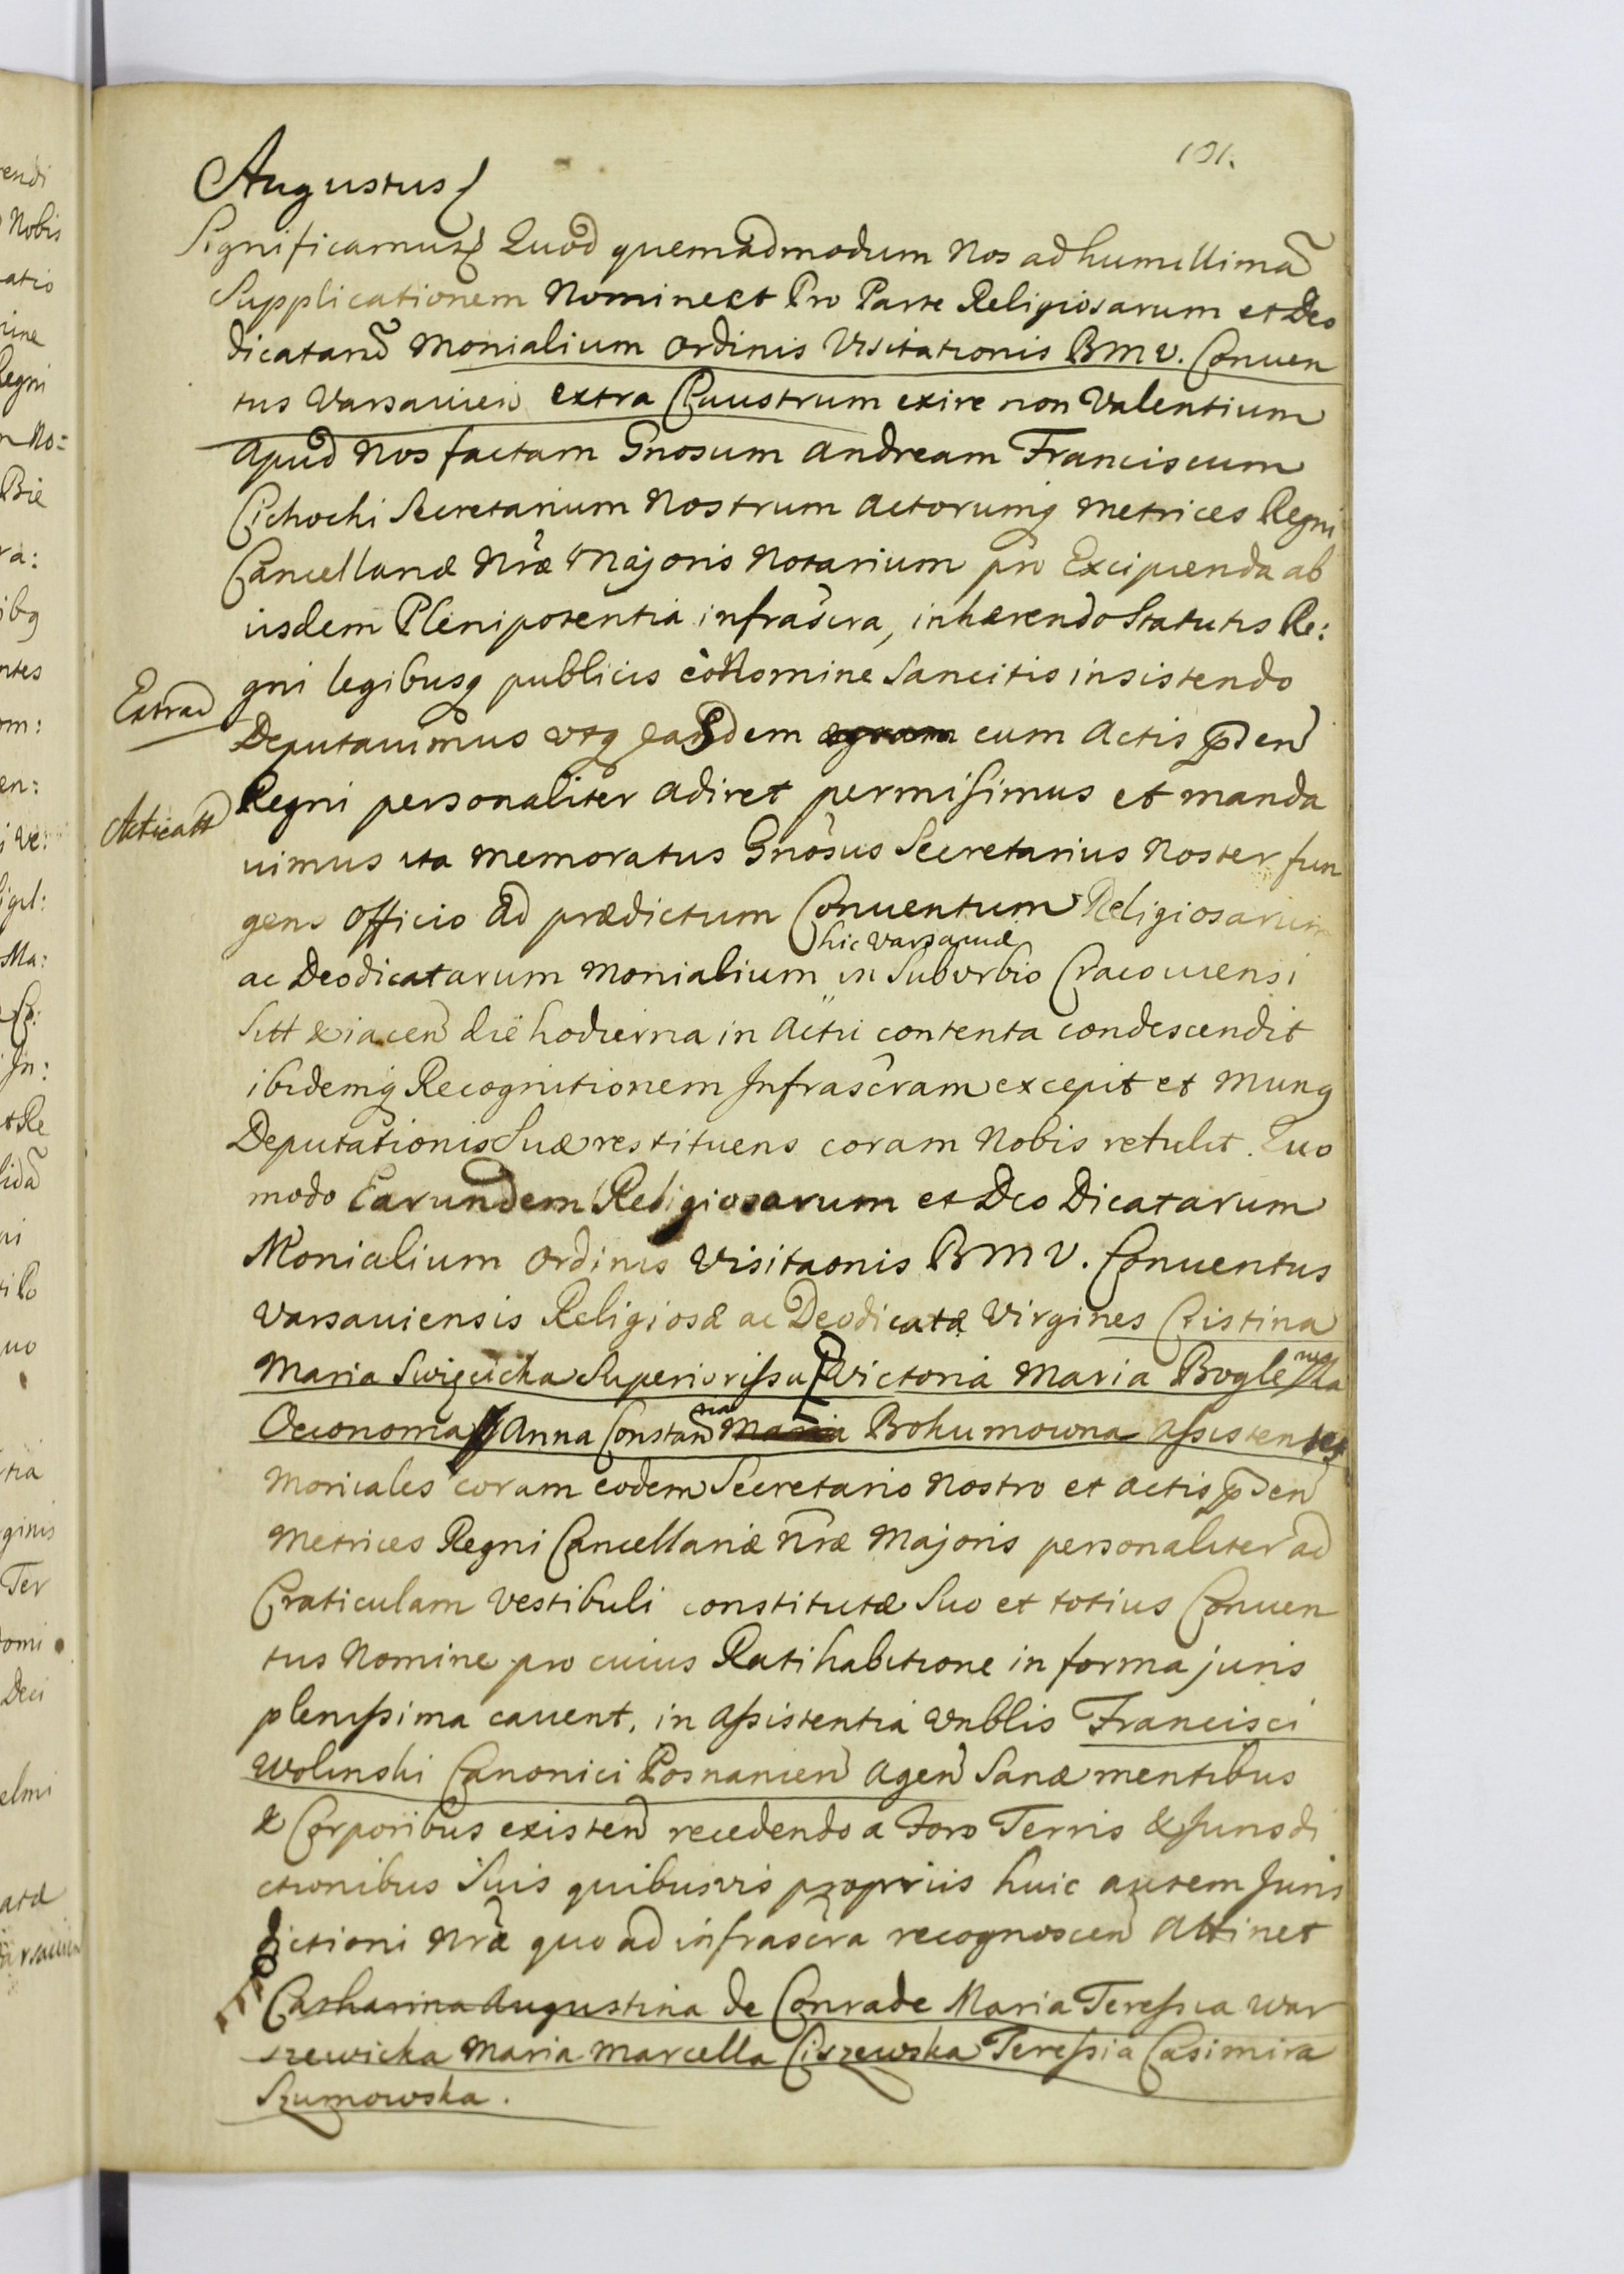 101.
Augustus
Significamus Quod quemadmodum Nos ad humillimã
Supplicationem Nomine et Pro Parte Religiosarum et Deo
dicatarũ Monialium Ordinis Visitationis BMV. Conuen
tus Varsauien extra Claustrum exire non Valentium
apud Nos factam Gnosum Andream Franciscum
Cichocki Secretarium Nostrum Actorumq Metrices Regni
Cancellariæ Nræ Majoris Notarium pro Excipienda ab
iisdem Plenipotentia infrascra, inhærendo Statutis Re:
gni legibusq publicis eo Nomine Sancitis insistendo
Extrad
Deputauimus vtq easdem cum Actis pden
Acticatt
Regni personaliter adiret permisimus et manda
uimus ita memoratus Gnosus Secretarius Noster fun
gens Officio ad prædictum Conuentum Religiosarum
hic Varsauiæ
ac Deodicatarum Monialium in Suburbio Cracouiensi
Sitt & iacen die hodierna in Actu contenta condescendit
ibidemq Recognitionem Infrascram excepit et Munq
Deputationis Suæ restituens coram Nobis retulit. Quo
modo Earundem Religiosarum et Deo Dicatarum
Monialium Ordinis Visitaonis BMV. Conuentus
Varsauiensis Religiosæ ac Deodicatæ Virgines Cristina
Maria Swięcicka Superiorissa Victoria Maria Bogle
Oeconoma Anna Constan Maria Bokumowna Assistentes
Moniales coram eodem Secretario Nostro et Actis pden
Metrices Regni Cancellariæ Nræ Majoris personaliter ad
Craticulam Vestibuli constitutæ Suo et totius Conuen
tus Nomine pro cuius Ratihabitione in forma juris
plenissima cauent, in Assistentia Vnblis Francisci
Wolinski Canonici Posnanien Agen Sanæ mentibus
& Corporibus existen recedendo a Foro Terris & Jurisdi
ctionibus Suis quibusvis proprijs huic autem Juris
dictioni Nræ quo ad infrascra recognoscen Attinet
Catharina Augustina de Conrade Maria Teressia War
szewicka Maria Marcella Ciszewska Teressia Casimira
Szumowska.